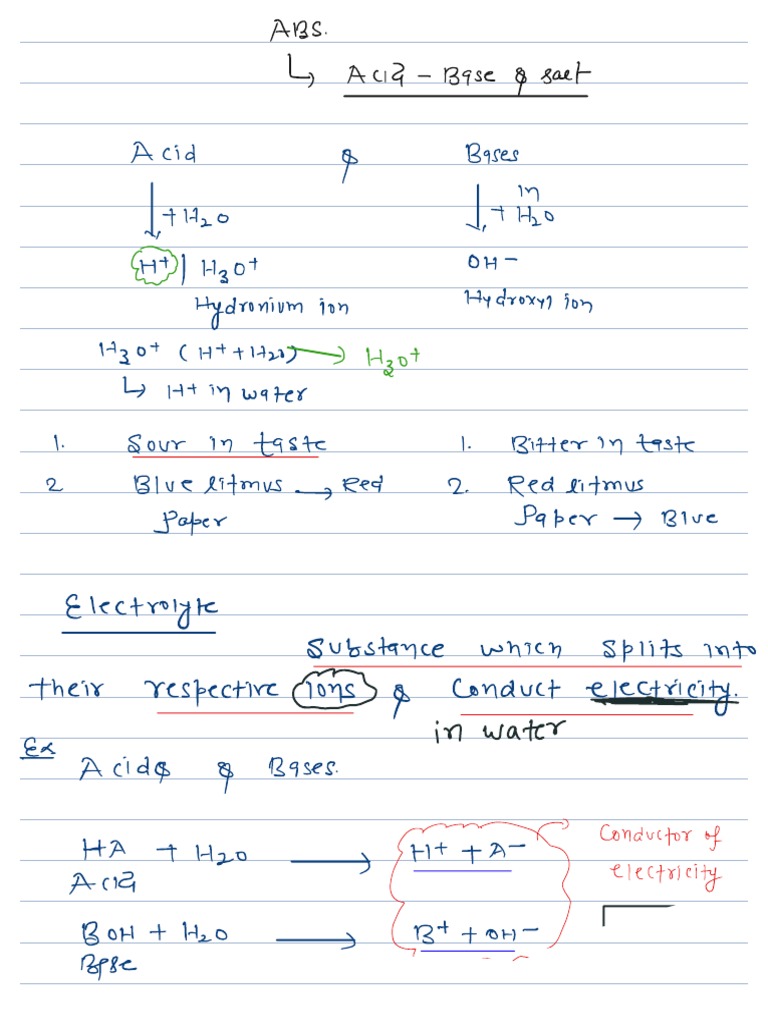 ABS.
↳ Acid - Base & salt
Acid & Bases
↓ + H2O ↓ + in H2O
H+ | H3O+ OH-
Hydronium ion Hydroxyl ion
H3O+ (H+ + H2O) → H3O+
↳ H+ in water
1. Sour in taste 1. Bitter in taste
2 Blue litmus → Red 2. Red litmus
Paper Paper → Blue
Electrolyte
Substance which splits into
their respective ions & Conduct electricity.
in water
Ex
Acids & Bases.
HA + H2O → H+ + A- Conductor of
Acid electricity
BOH + H2O → B+ + OH-
Base